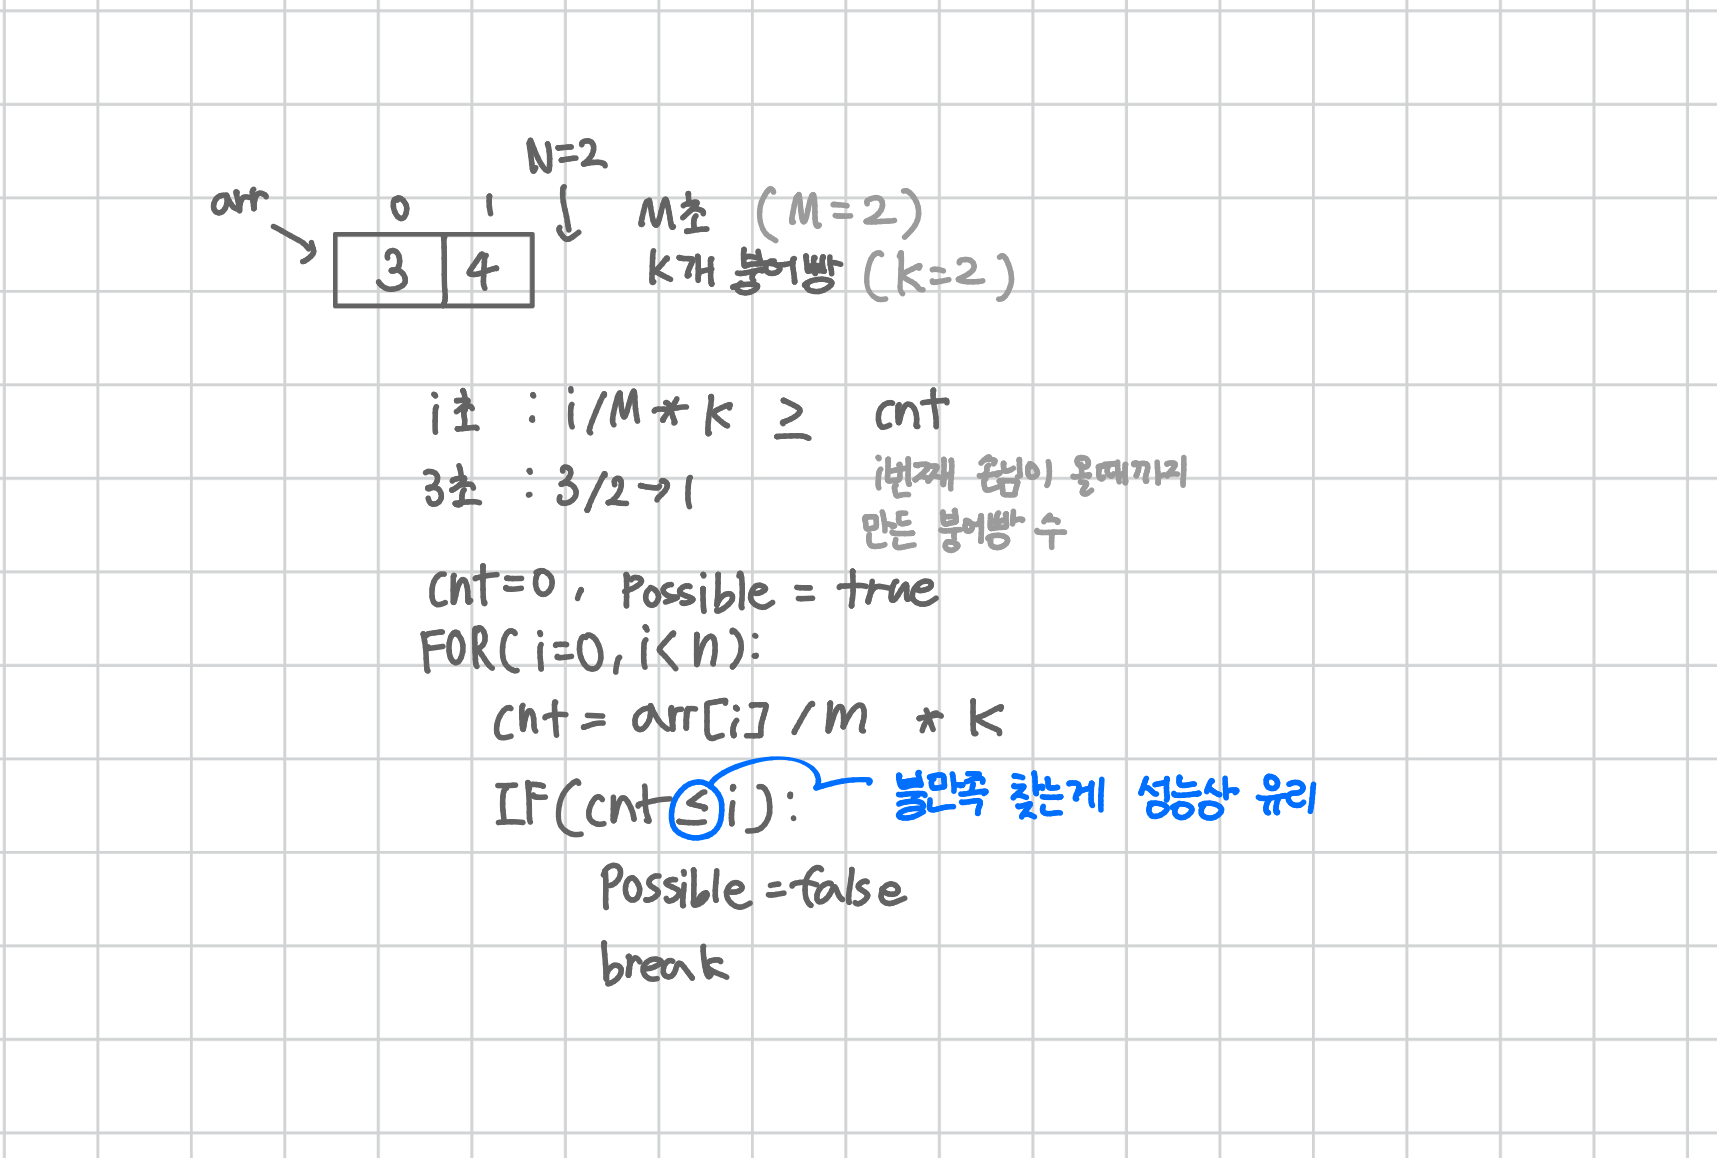 N=2
arr 0 1 M초 (M=2)
3 4 K개 붕어빵 (K=2)
i초 : i/M * K ≥ cnt
3초 : 3/2→1 i번째 손님이 올때까지
만든 붕어빵 수
cnt=0, Possible = true
FOR(i=0, i<n):
cnt = arr[i] /m * K
IF(cnt ≤ i): 불만족 찾는게 성능상 유리
Possible = false
break